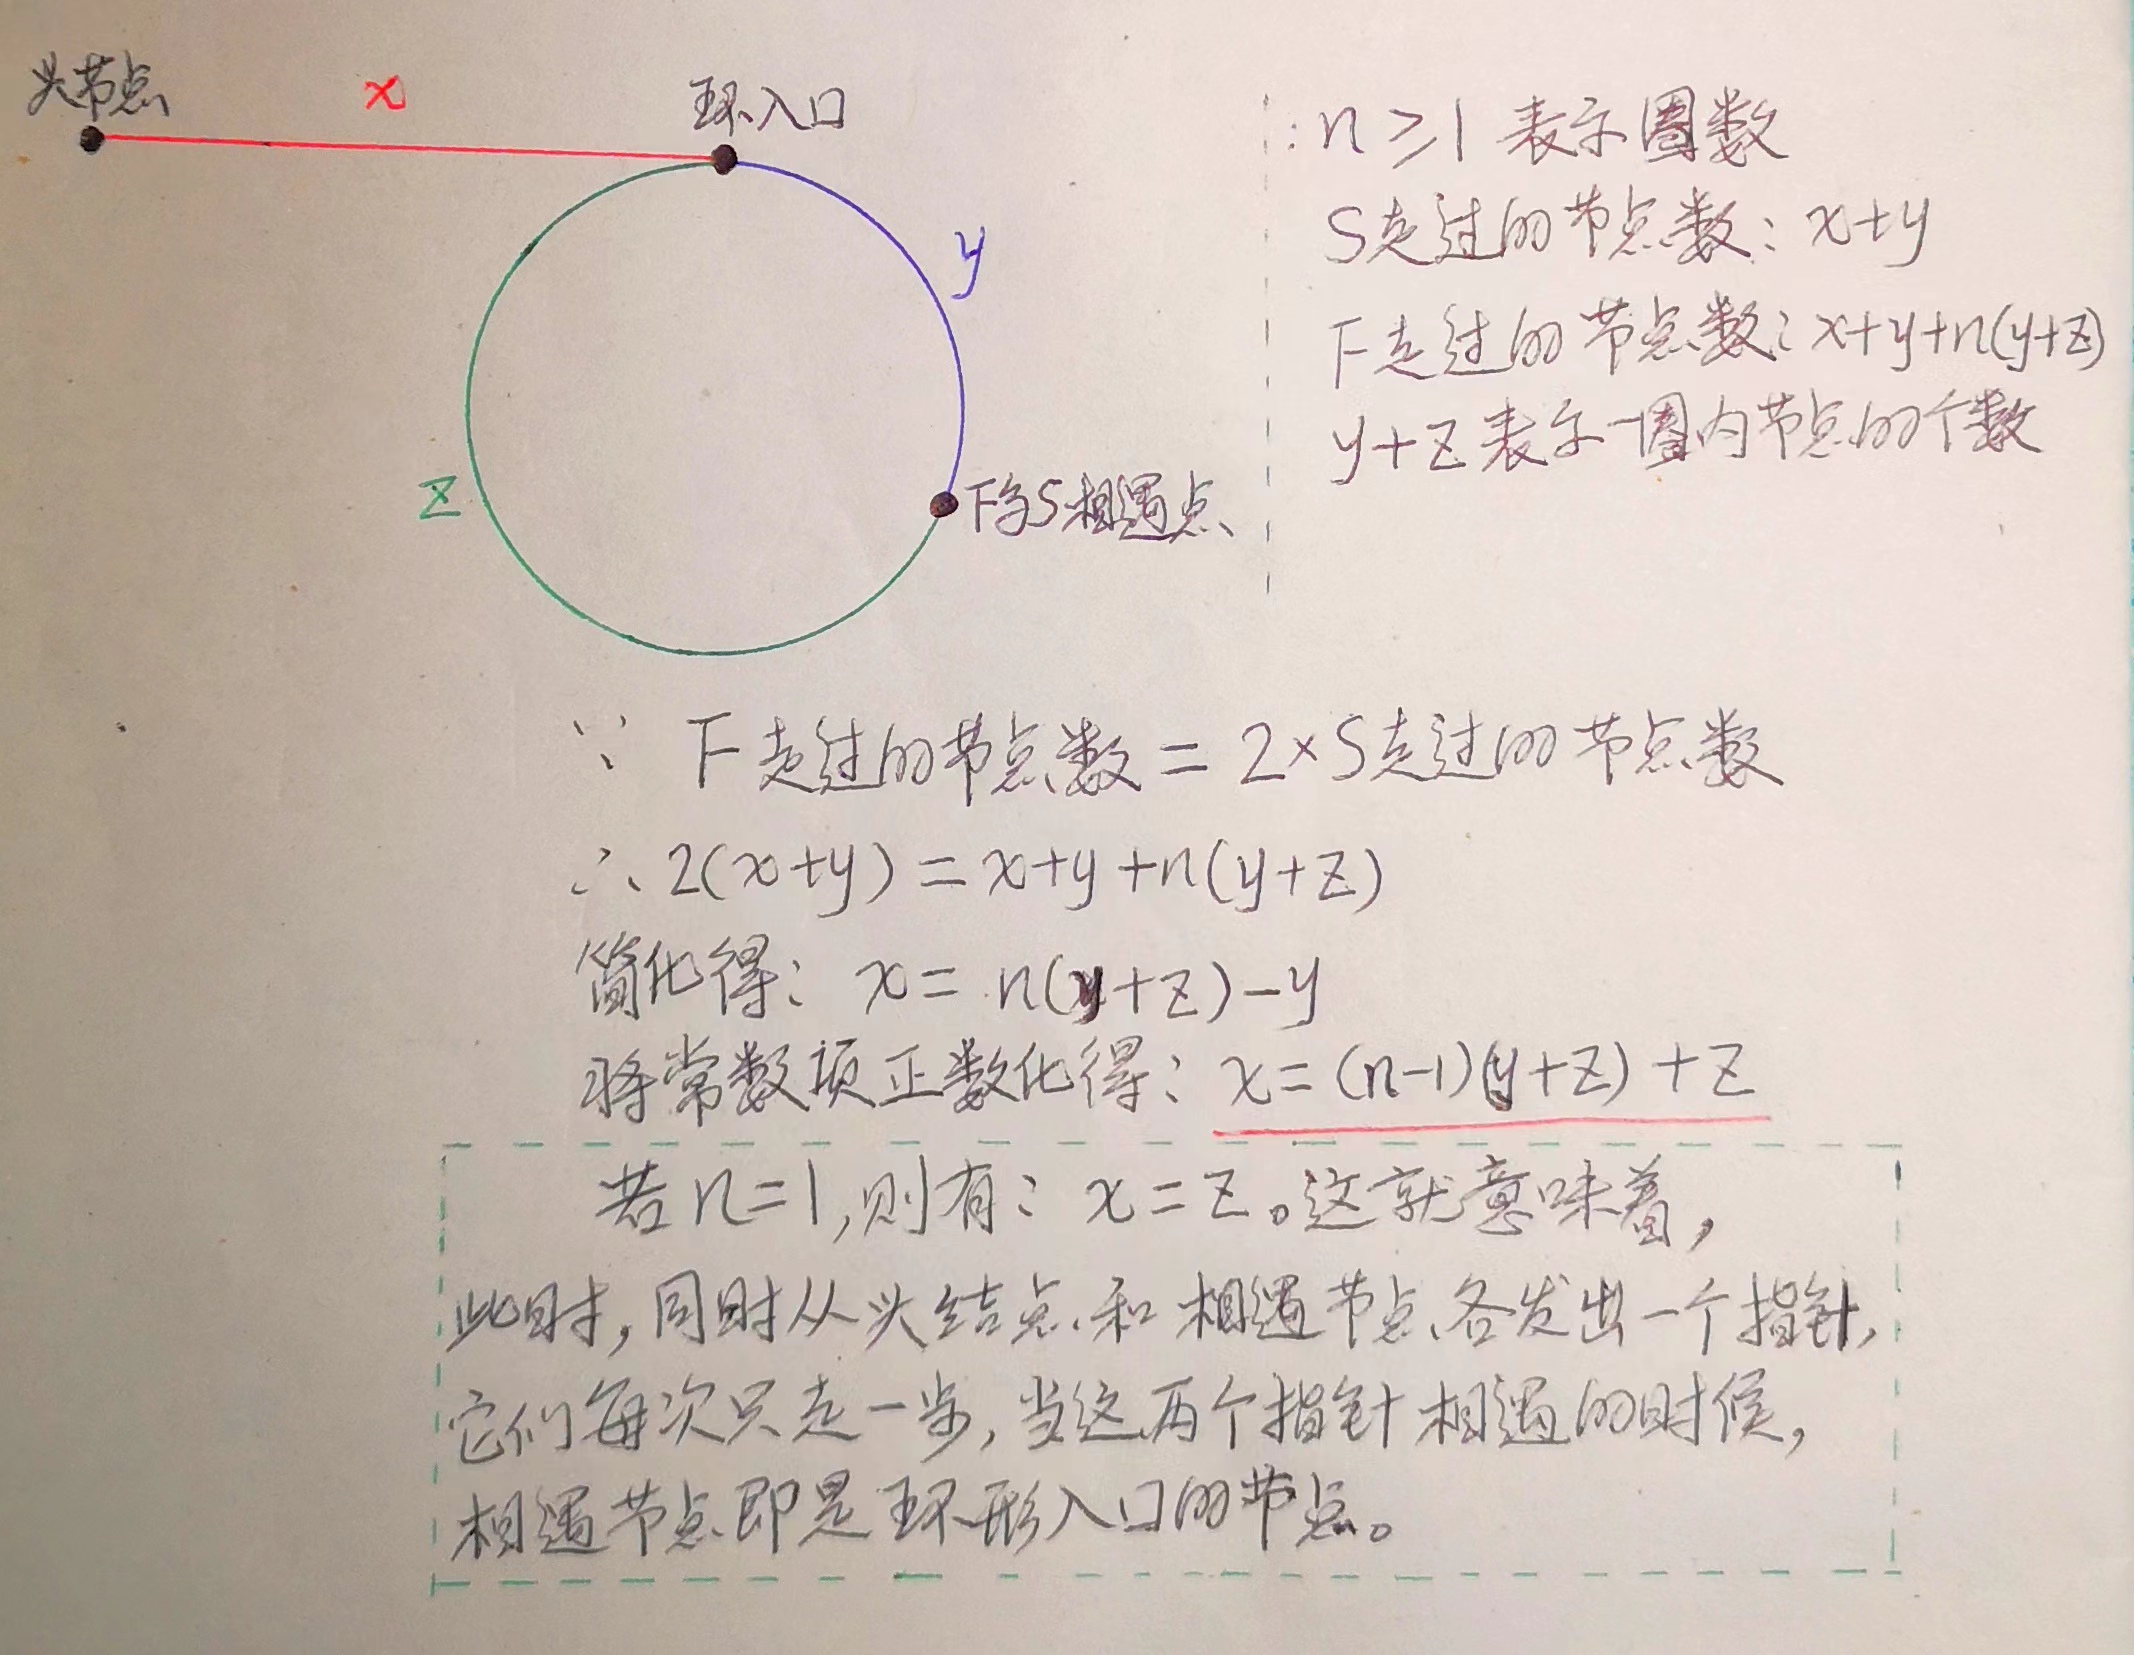 头节点
x
环入口
y
z
F与S相遇点
:n≥1 表示圈数
S走过的节点数:x+y
F走过的节点数:x+y+n(y+z)
y+z表示一圈内节点的个数
∵ F走过的节点数=2×S走过的节点数
∴ 2(x+y)=x+y+n(y+z)
简化得:x=n(y+z)-y
将常数项正数化得:x=(n-1)(y+z)+z
若n=1,则有:x=z。这就意味着,
此时,同时从头结点和相遇节点各发出一个指针,
它们每次只走一步,当这两个指针相遇的时候,
相遇节点即是环形入口的节点。